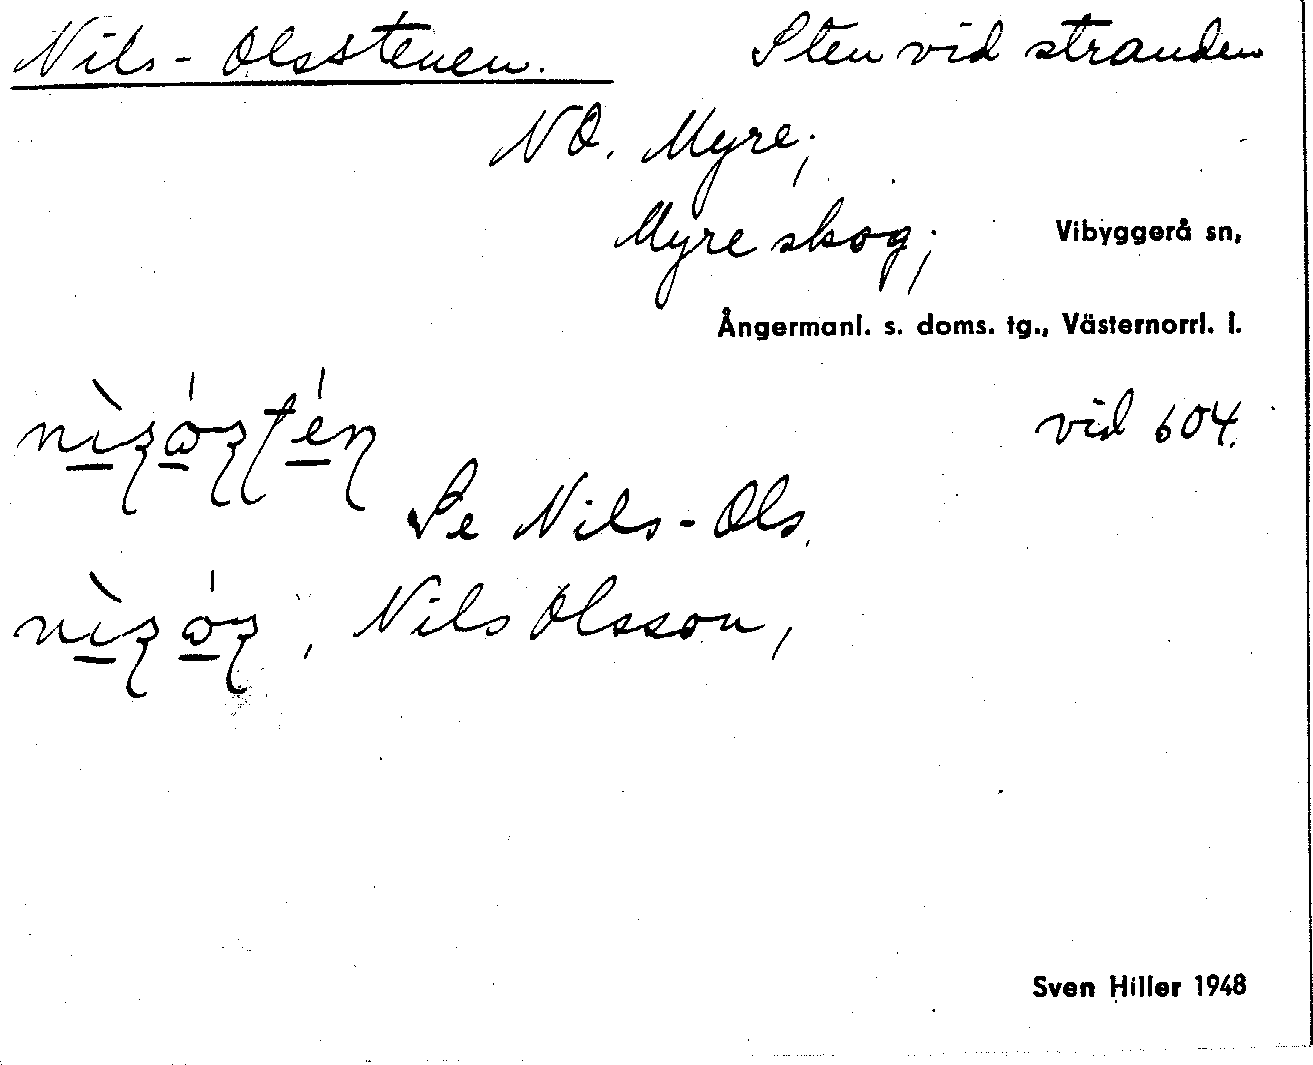 Nils-Olsstenen. Sten vid stranden
NO. Myre;
Myre skog; Vibyggerå sn,
Ångermanl. s. doms. tg., Västernorrl. l.
vid 604.
Se Nils-Ols.
Nils Olsson,
Sven Hiller 1948